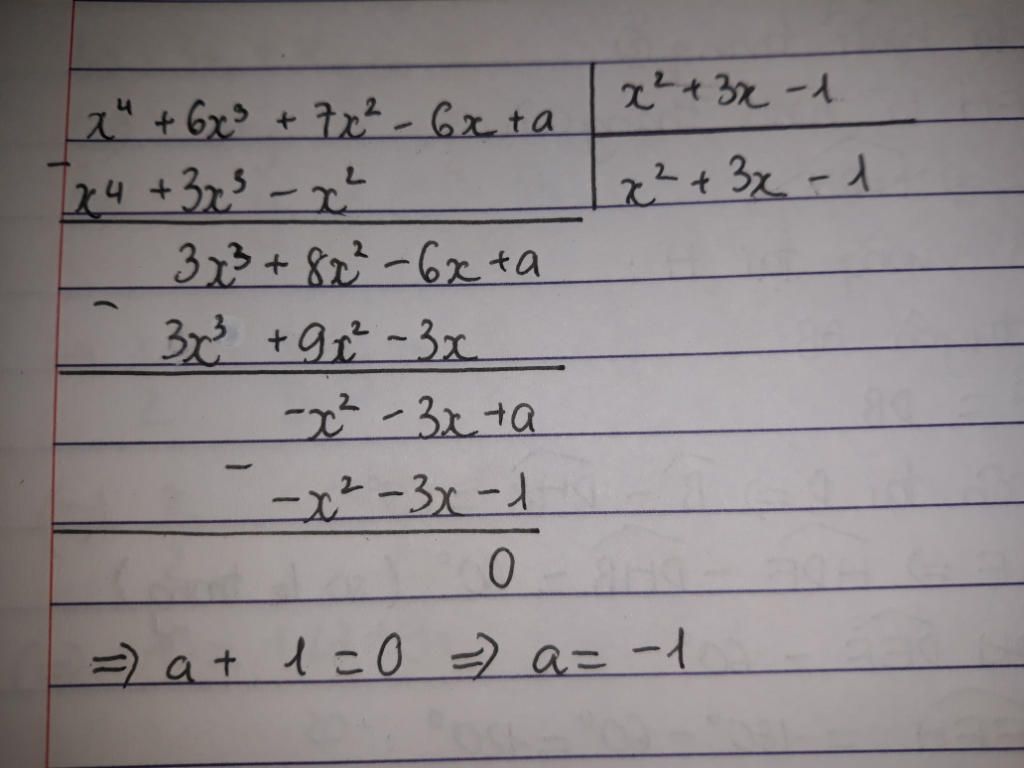 x⁴ + 6x³ + 7x² - 6x + a | x² + 3x - 1
- x⁴ + 3x³ - x² | x² + 3x - 1
3x³ + 8x² - 6x + a
- 3x³ + 9x² - 3x
-x² - 3x + a
- -x² - 3x - 1
0
⇒ a + 1 = 0 ⇒ a = -1